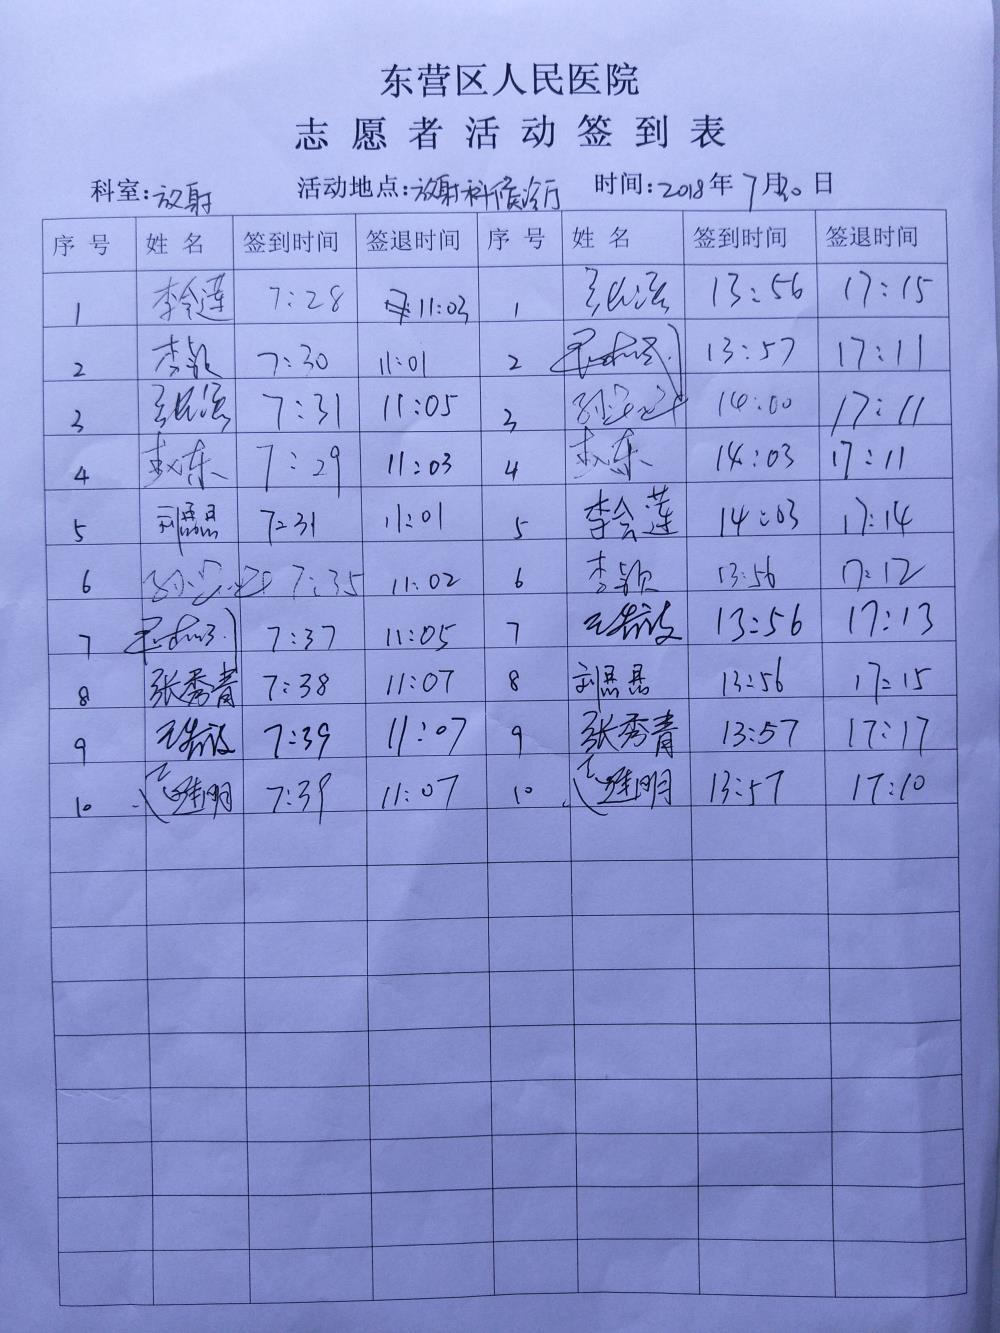 东营区人民医院
志愿者活动签到表
科室:放射 活动地点:放射科候诊厅 时间:2018年7月 日
序号 姓名 签到时间 签退时间 序号 姓名 签到时间 签退时间
1 李会莲 7:28 11:03 1 13:56 17:15
2 李颖 7:30 11:01 2 13:57 17:11
3 7:31 11:05 3 14:00 17:11
4 赵东 7:29 11:03 4 赵东 14:03 17:11
5 刘磊磊 7:31 11:01 5 李会莲 14:03 17:14
6 7:35 11:02 6 李颖 13:56 17:12
7 7:37 11:05 7 13:56 17:13
8 张秀青 7:38 11:07 8 刘磊磊 13:56 17:15
9 7:39 11:07 9 张秀青 13:57 17:17
10 7:39 11:07 10 13:57 17:10